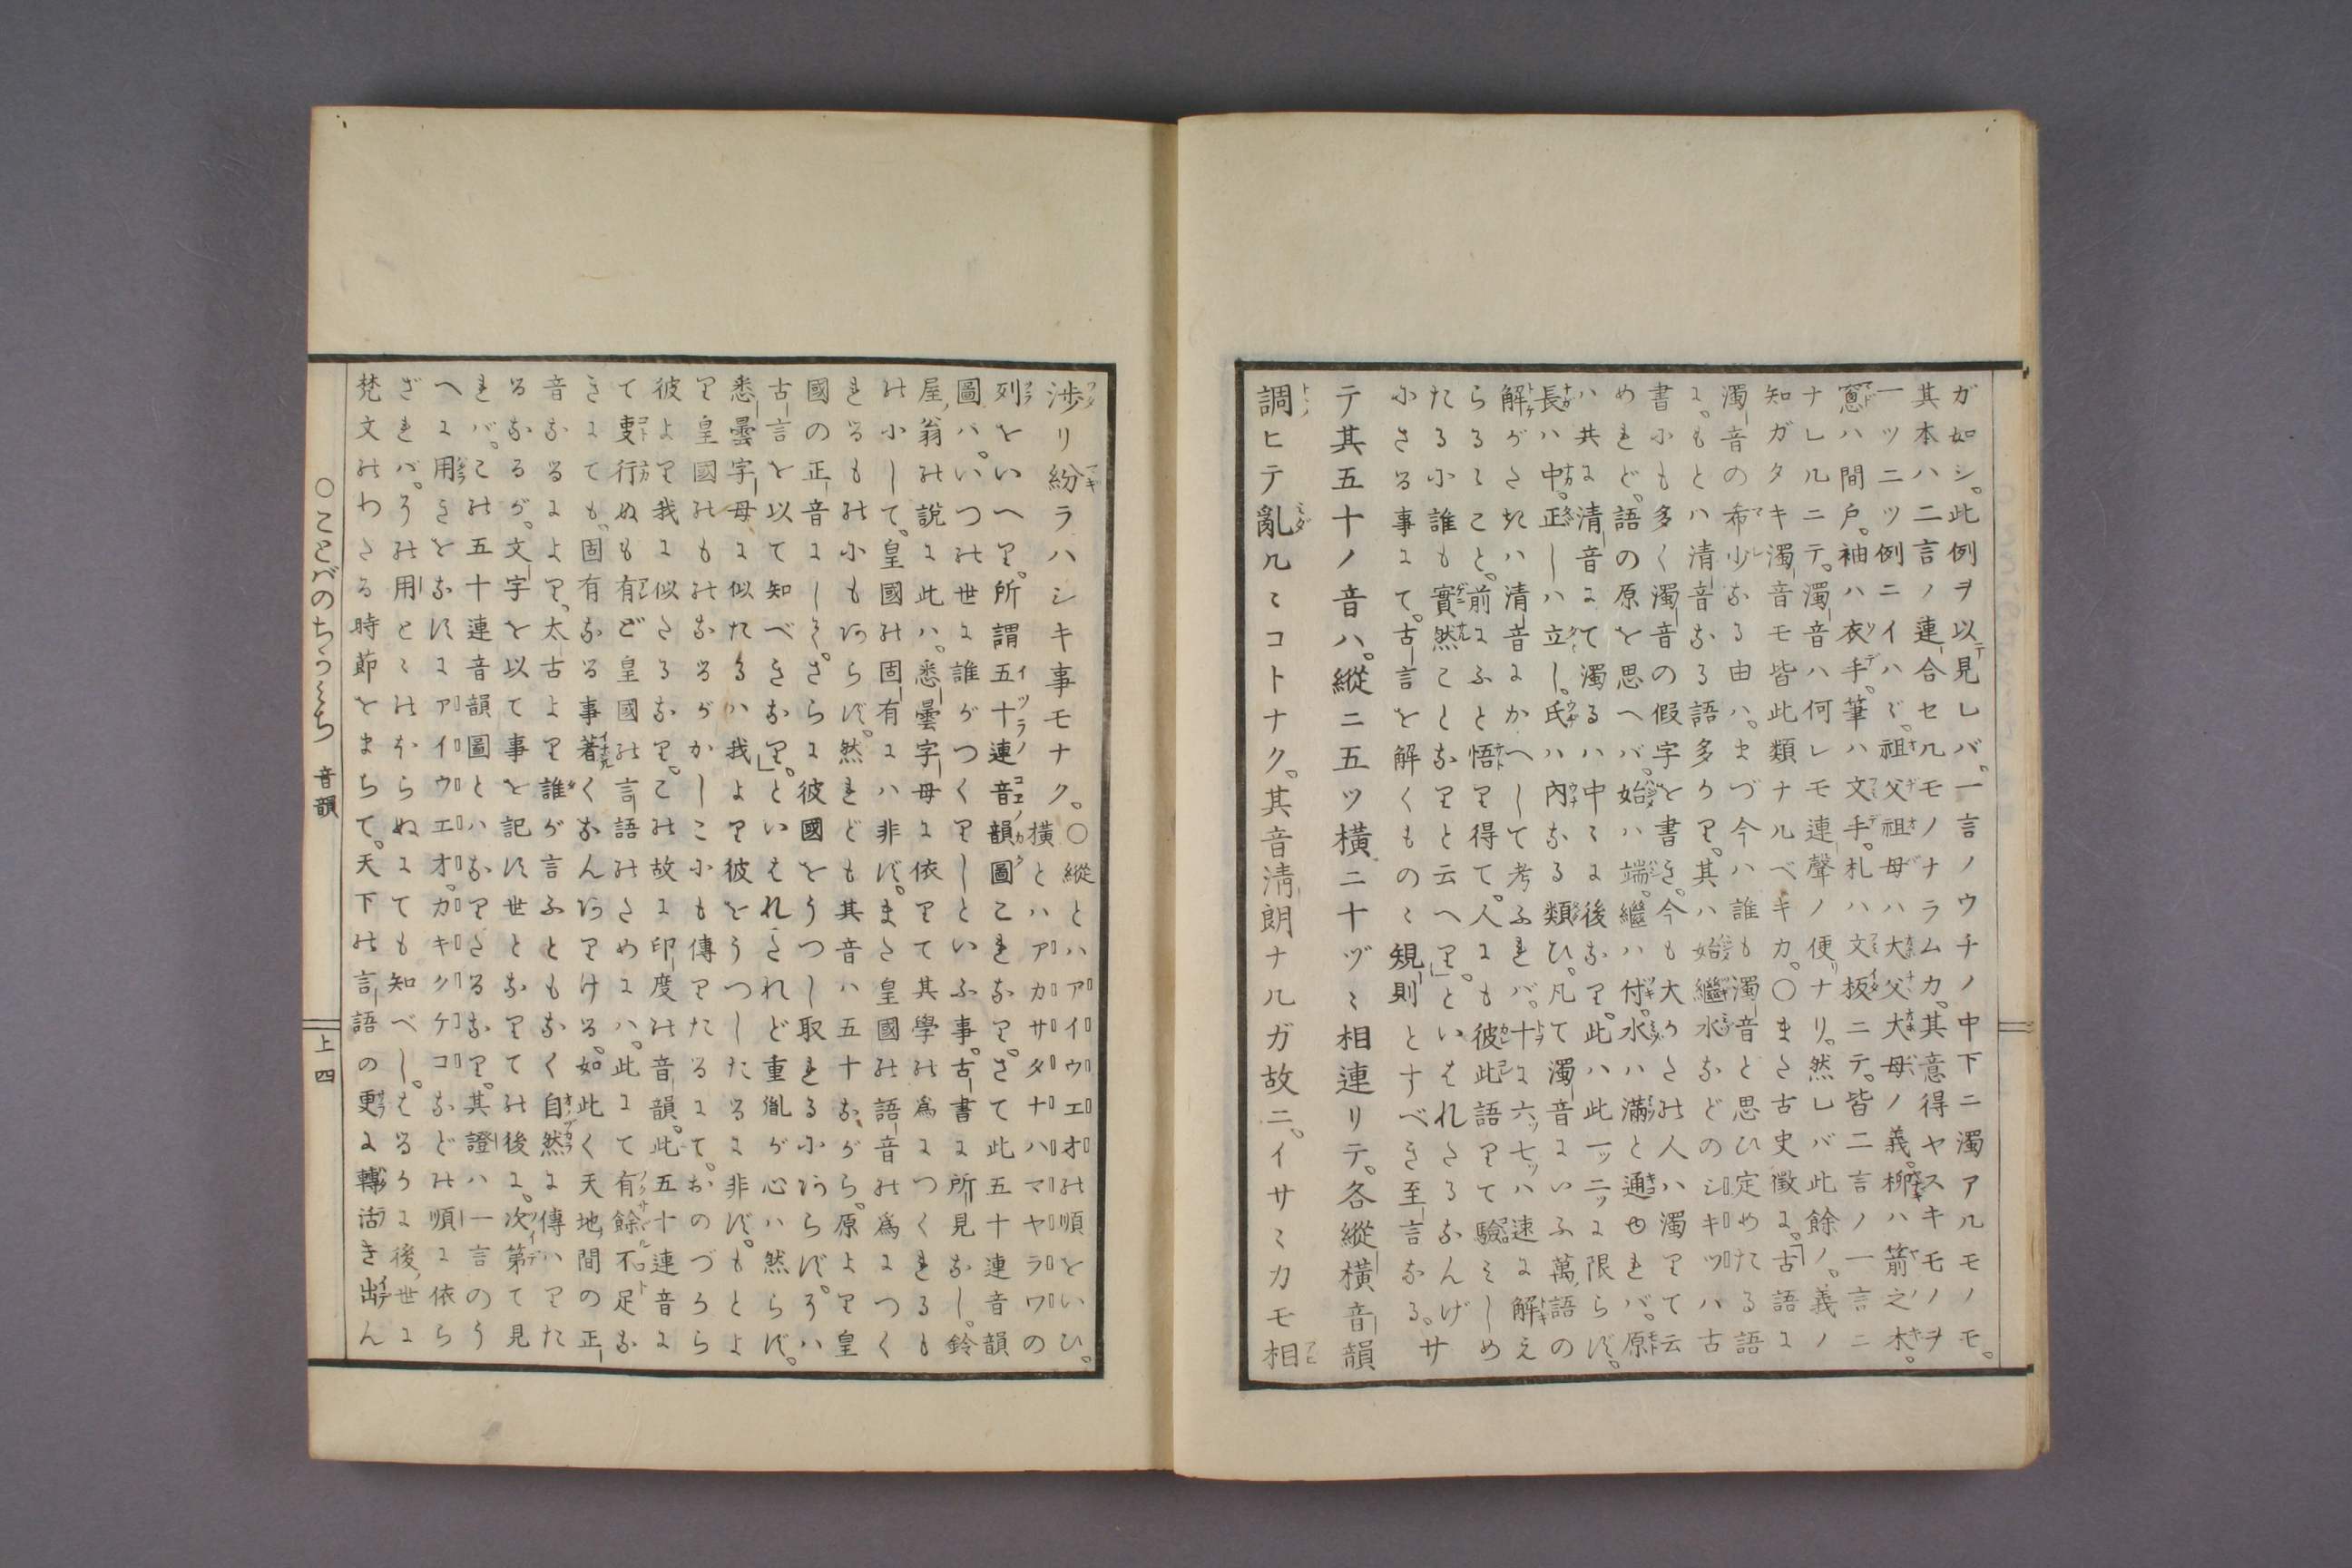 ガ如シ。此例ヲ以見レバ。一言ノウチノ中下ニ濁アルモノモ。
其本ハ二言ノ連合セルモノナラムカ。其意得ヤスキモノヲ
一ツニツ例ニイハヾ。祖父祖母ハ大父大母ノ義。柳ハ箭之木。
窻ハ間戸。袖ハ衣手。筆ハ文手。札ハ文板ニテ。皆二言ノ一言ニ
ナレルニテ。濁音ハ何レモ連聲ノ便ナリ。然レバ此餘ノ。義ノ
知ガタキ濁音モ皆此類ナルベキカ。〇まさ古史徴に。「古語に
濁音の希少なる由ハ。まづ今ハ誰も濁音と思ひ定めたる語
に。もとハ清音なる語多かり。其ハ始繼水などのシキツハ古
書にも多く濁音の假字を書き。今も大かさの人ハ濁りて云
めれど。語の原を思へバ。始ハ端。繼ハ付。水ハ滿と通ゆれバ。原
ハ共に清音にて濁るハ中ミに後なり。此ハ此一ッ二ッに限らず。
長ハ中。正しハ立し。氏ハ内なる類ひ。凡て濁音にいふ萬語の
解がさきハ清音にかへして考ふれバ。十に六ッ七ッハ速に解え
らるゝこと。前にふと悟り得て。人にも彼此語りて驗みしめ
たる小誰も實然ことなりと云へり」。といはれさるなんげサ
にさる事にて。古言を解くものゝ規則とすべき至言なる。
テ其五十ノ音ハ。縱ニ五ツ横ニ十ヅヽ相連リテ。各縱横音韻
調ヒテ亂ルヽコトナク。其音清朗ナルガ故ニ。イサミカモ相
渉リ紛ラハシキ事モナク。〇縱とハアイウエオの順をいひ。
横とハアカサタナハマヤラワの
列をいへり。所謂五十連音韻圖これなり。さて此五十連音韻
圖ハ。いつの世に誰がつくりしといふ事。古書に所見なし。鈴
屋翁の説に此ハ。悉曇字母に依りて其學の爲につくれるも
のにして。皇國の固有にハ非ず。まさ皇國の語音の爲につく
れるものにもあらず。然れども其音ハ五十ながら。原より皇
國の正音にしも。ざらに彼國をうつし取れるにあらず。うハ
古言を以て知べきなり」。といはれされど重胤が心ハ然らず。
悉曇字母に似たるハ我より彼をうつしたるに非ず。もとよ
り皇國のものなるがかしこにも傳りたるにて。おのづから
彼より我に似さるなり。この故に印度の音韻。此五十連音に
て更行ぬも有ど皇國の言語のさめにハ。此にて有餘不足な
きにても。固有なる事著くなんありける。如此く天地間の正
音なるにより。太古より誰が言ふともなく自然に傳ハりた
るなるが。文字を以て事を記す世となりての後に。次第て見
れバ。この五十連音韻圖とハなりさるなり。其證ハ一言のう
へに用きをなすにアイウエオ。カキクケコなどの順に依ら
ざれバ。うの用とゝのおらぬにても知べし。はるかに後世に
梵文のわさる時節をまちて。天下の言語の更に轉活き出ん
〇ことばのちかみち 音韻
上四